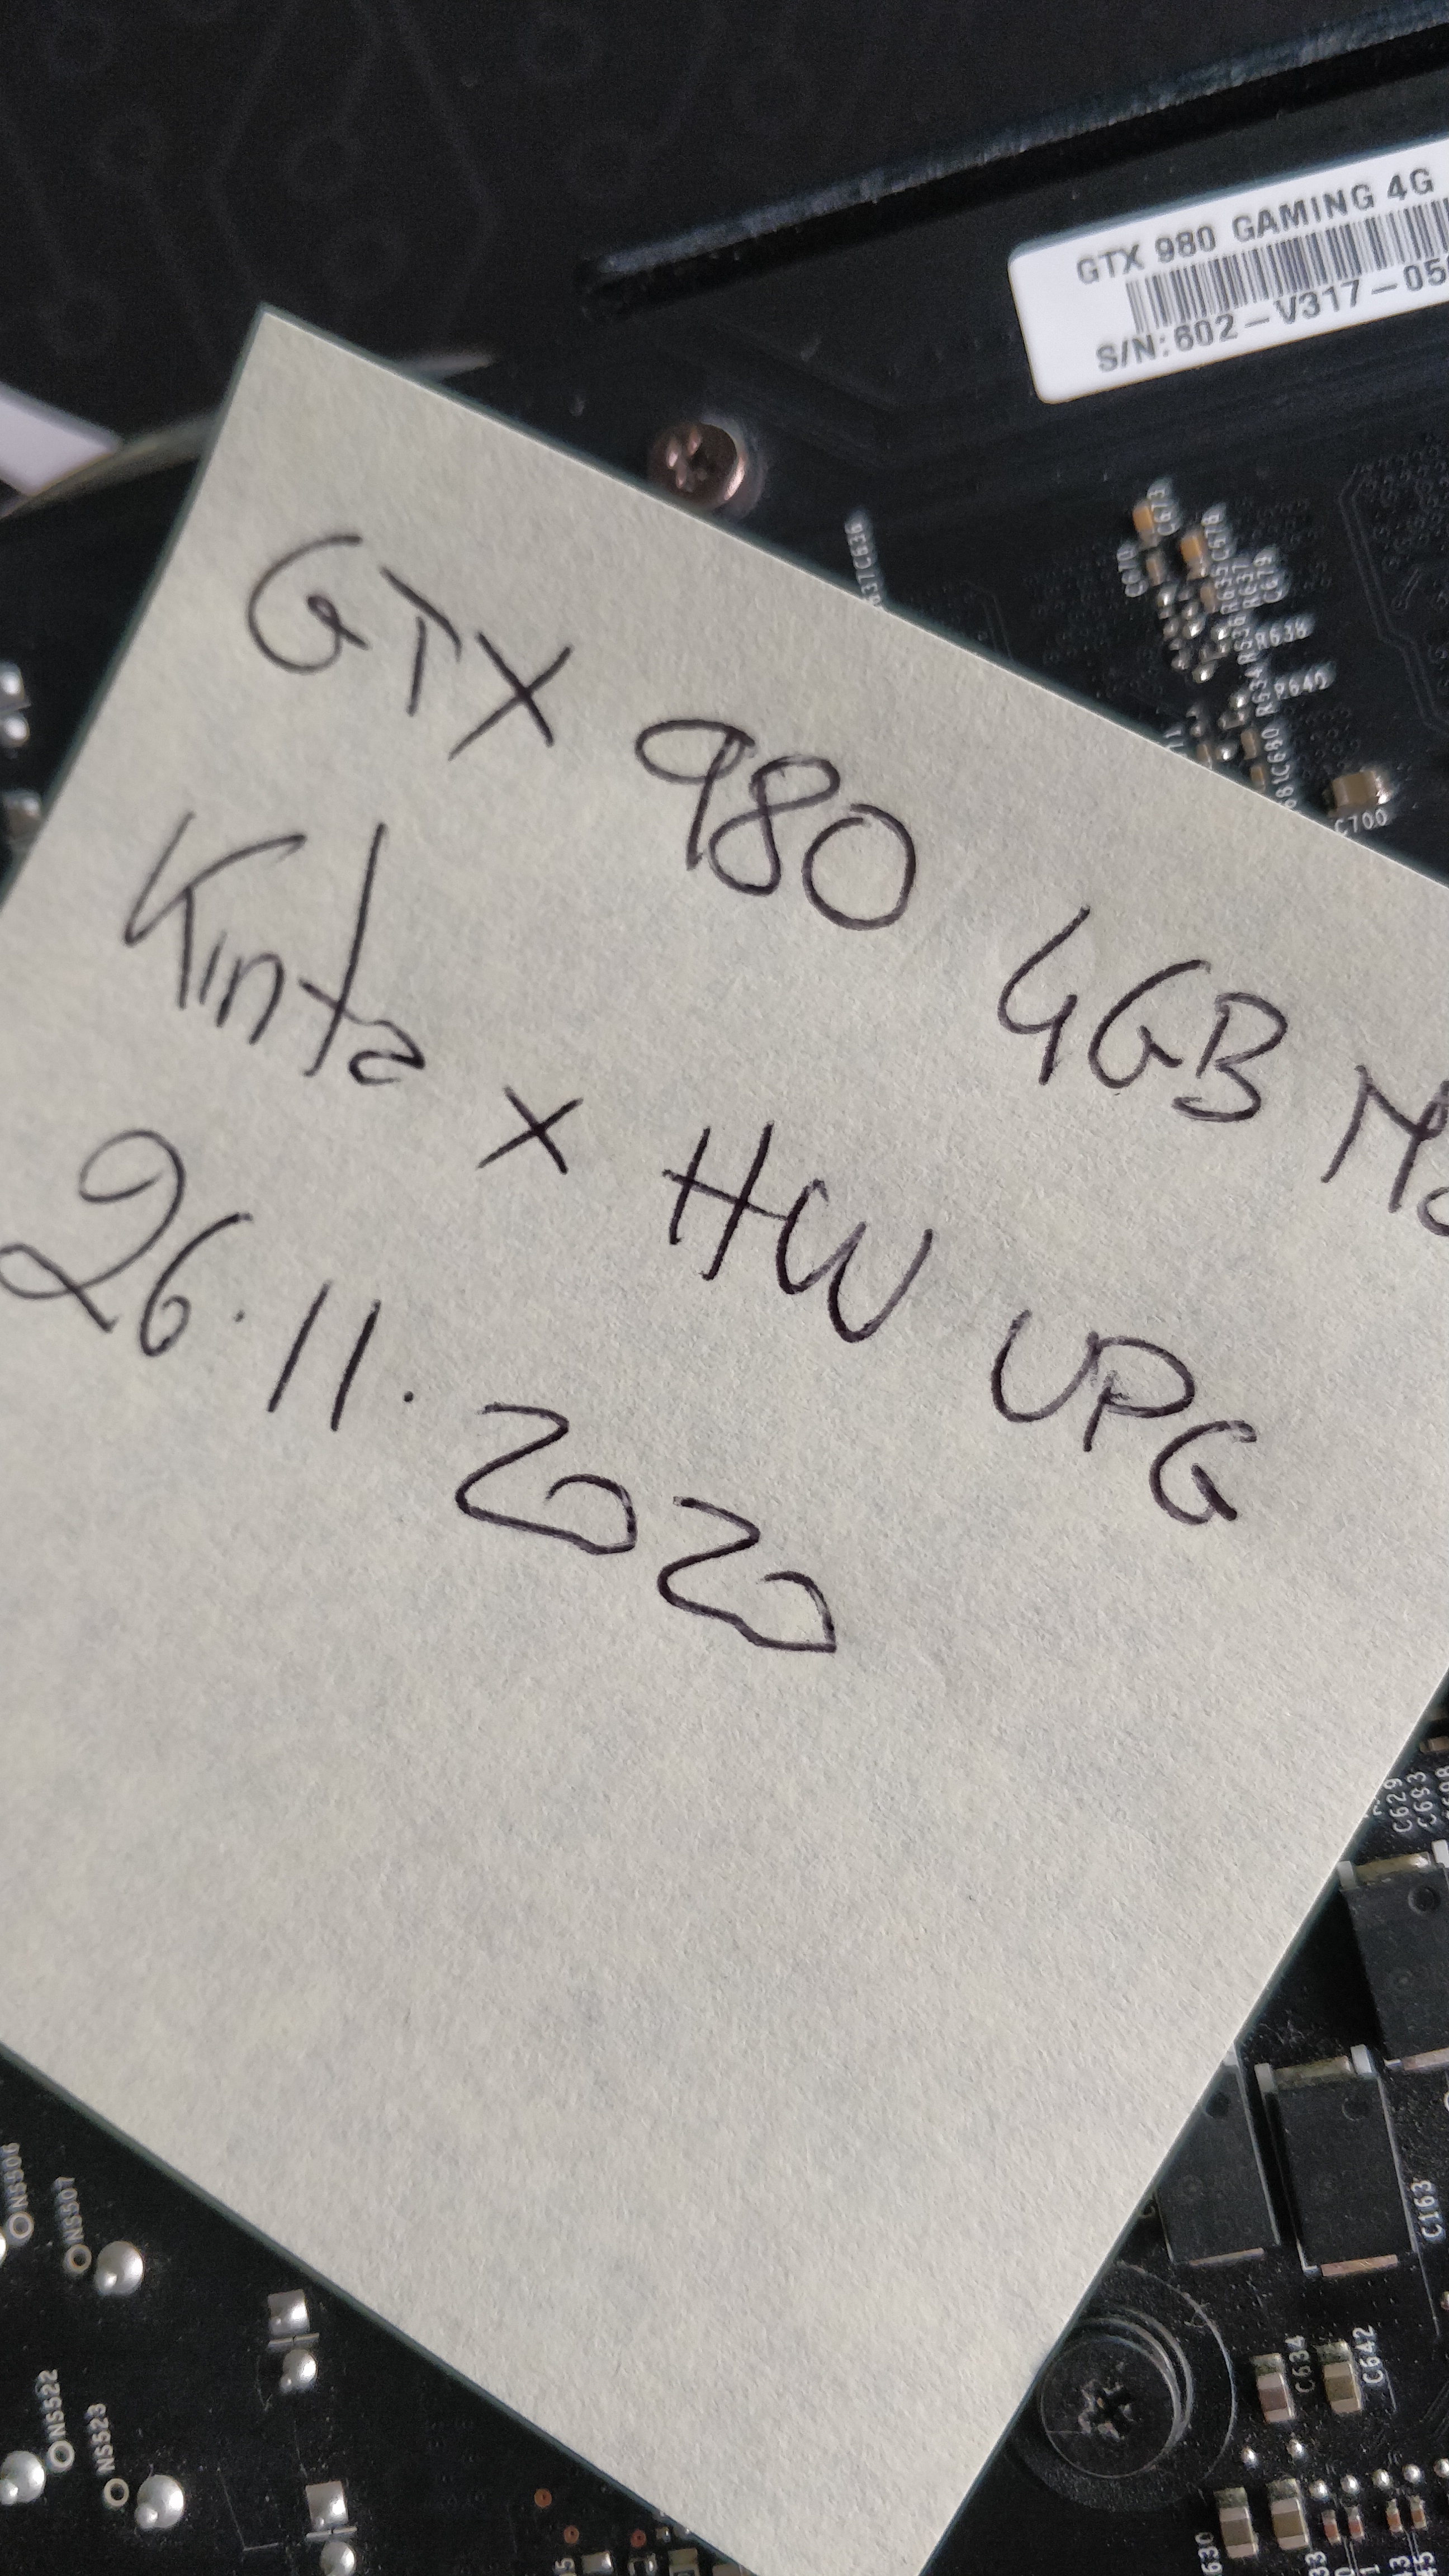 GTX 980 GAMING 4G
S/N:602-V317-05
GTX 980 4GB
Kinta x HW UPG
26.11.2020
637C636
C673
C678
C670
R635
R637
C679
R636
R638
R634
R640
C680
C700
C629
C693
C163
C634
C642
NS506
NS507
NS522
NS523
630